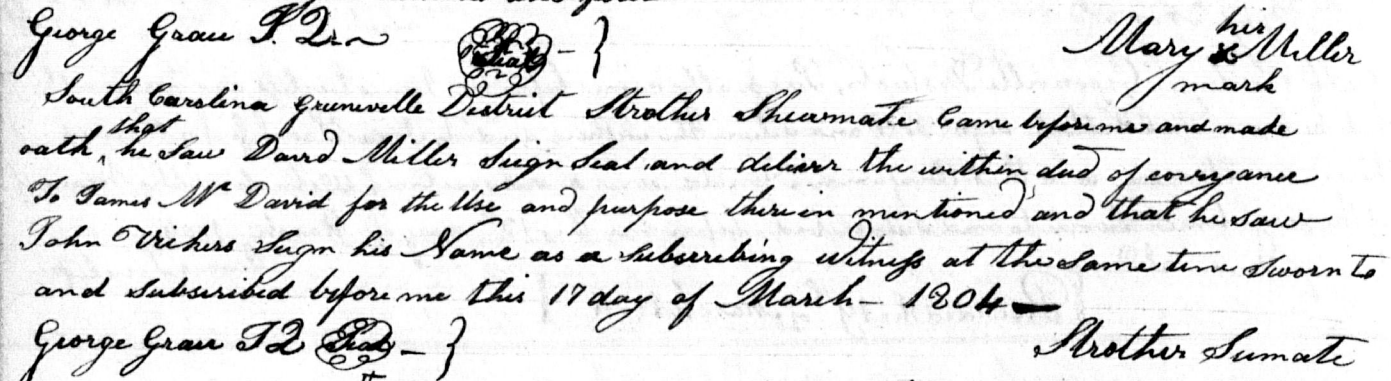 George Grace J. Q. Seal } Mary her x Miller
mark
South Carolina Greenville District Strother Shewmate Came before me and made
oath that he Saw David Miller Seign Seal and deliver the within deed of conveyance
To James McDavid for the Use and purpose therein mentioned and that he Saw
John Vickers Seign his Name as a Subscribing Witness at the Same time Sworn to
and Subscribed before me this 17 day of March 1804
George Grace J Q Seal } Strother Sumate